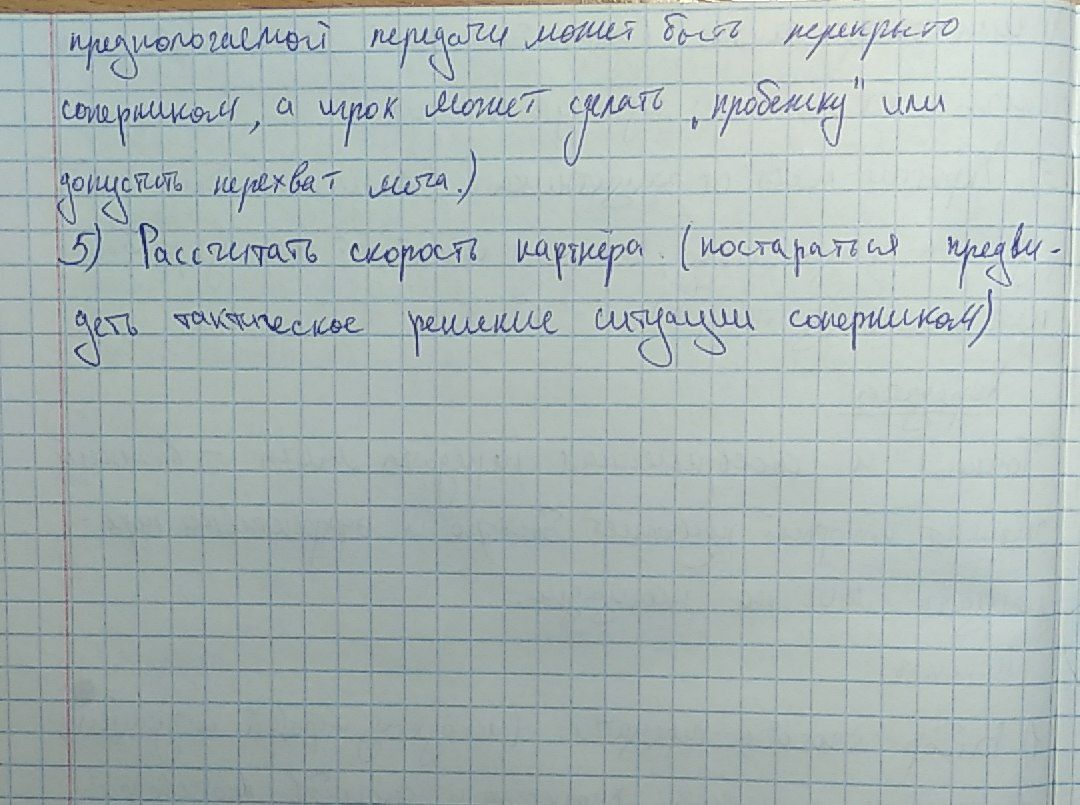 предпологаемой передачи может быть перекрыто
соперником, а игрок может сделать „пробежку" или
допустить перехват мяча.)
5) Рассчитать скорость партнёра. (постараться предви-
деть тактическое решение ситуации соперником)